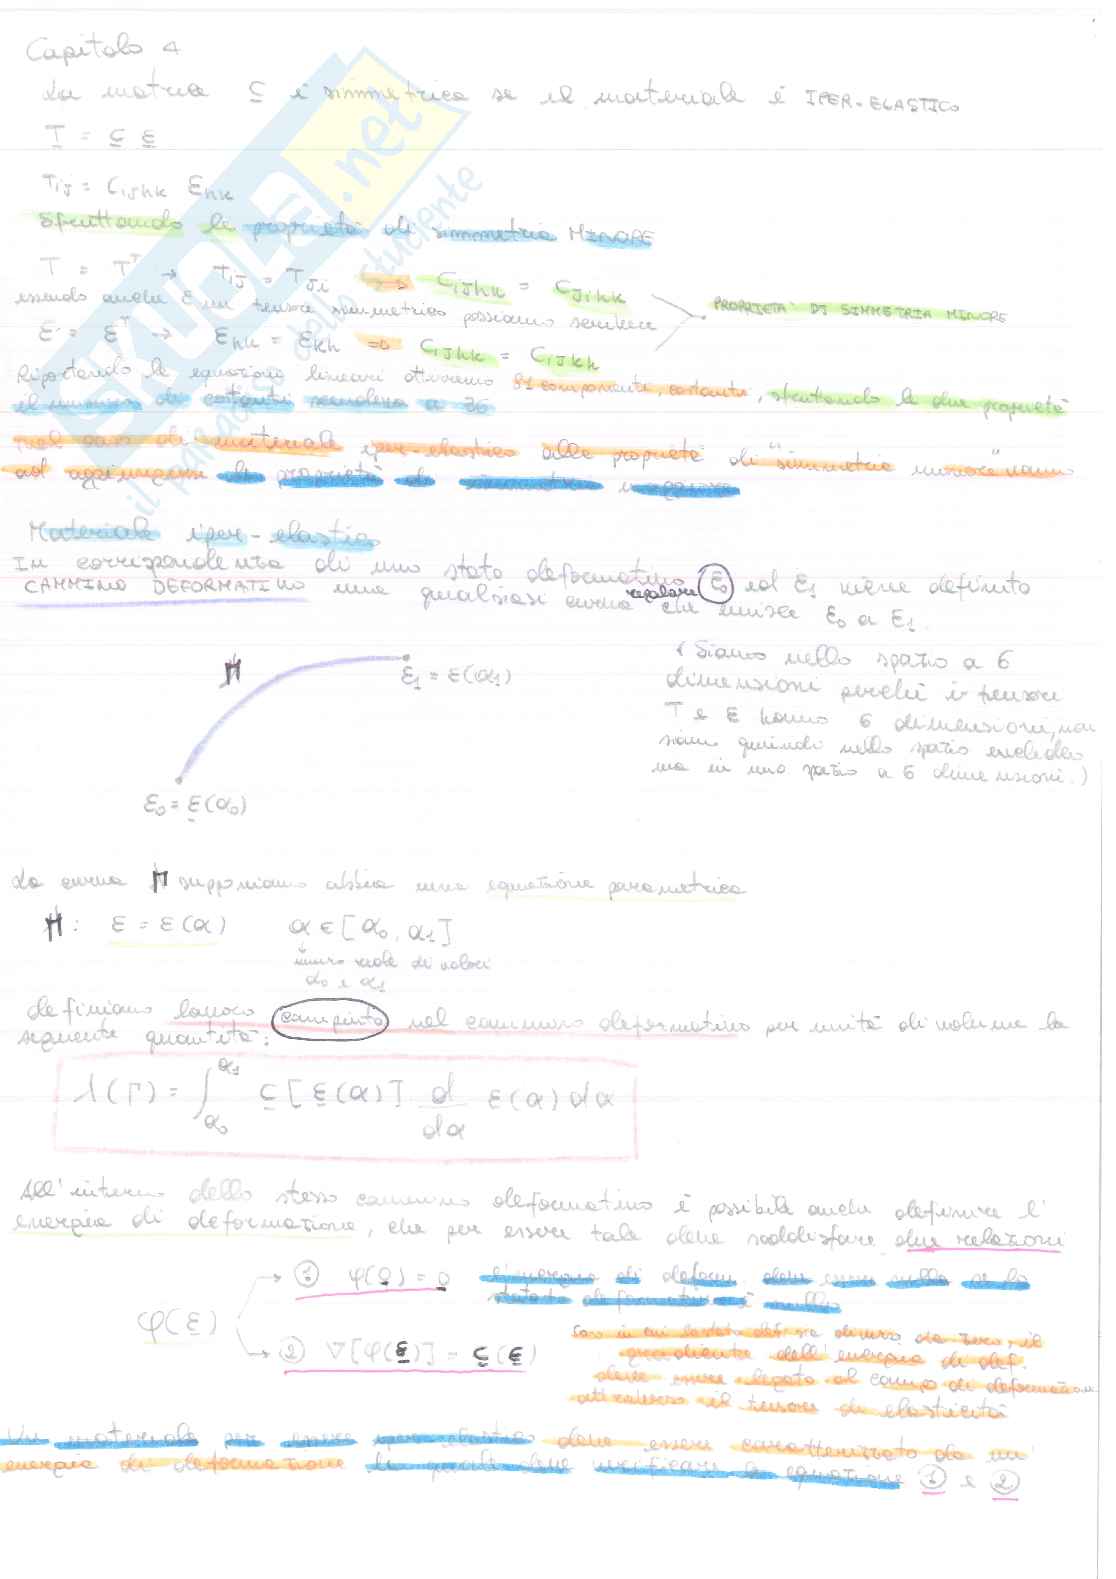 Capitolo 4
La matrice C è simmetrica se il materiale è IPER-ELASTICO
T = C ε
Tij = Cijhk εhk
Sfruttando le proprietà di simmetria MINORE
T = Tᵀ → Tij = Tji => Cijhk = Cjihk
essendo anche ε un tensore simmetrico possiamo scrivere
PROPRIETA' DI SIMMETRIA MINORE
ε = εᵀ → εhk = εkh => Cijhk = Cijkh
Riportando le equazioni lineari otteniamo 81 componenti, costanti, sfruttando le due proprietà
il numero di costanti scendono a 36
nel caso di materiale iper-elastico alle proprietà di "simmetria minore" vanno
ad aggiungersi le proprietà di simmetria maggiore
Materiale iper-elastico
In corrispondenza di uno stato deformativo ε0 ed ε1 viene definito
CAMMINO DEFORMATIVO una qualsiasi curva regolare che unisce ε0 a ε1.
Γ
ε1 = ε(α1)
ε0 = ε(α0)
(Siamo nello spazio a 6
dimensioni perché i tensori
T e ε hanno 6 dimensioni, non
siamo quindi nello spazio euclideo
ma in uno spazio a 6 dimensioni.)
La curva Γ supponiamo abbia una equazione parametrica
Γ: ε = ε(α) α ∈ [α0, α1]
numero reale di valori
α0 e α1
definiamo lavoro compiuto nel cammino deformativo per unità di volume la
seguente quantità:
λ(Γ) = ∫α0^α1 C[ε(α)] d/dα ε(α) dα
All'interno dello stesso cammino deformativo è possibile anche definire l'
energia di deformazione, che per essere tale deve soddisfare due relazioni
φ(ε)
① φ(0) = 0 l'energia di deform. deve essere nulla se lo
stato deformativo è nullo
② ∇[φ(ε)] = C(ε)
Caso in cui lo stato def. sia diverso da zero, il
gradiente dell'energia di def.
deve essere legato al campo di deformazione
attraverso il tensore di elasticità
Un materiale per essere iper elastico deve essere caratterizzato da un'
energia di deformazione la quale deve verificare le equazione ① e ②